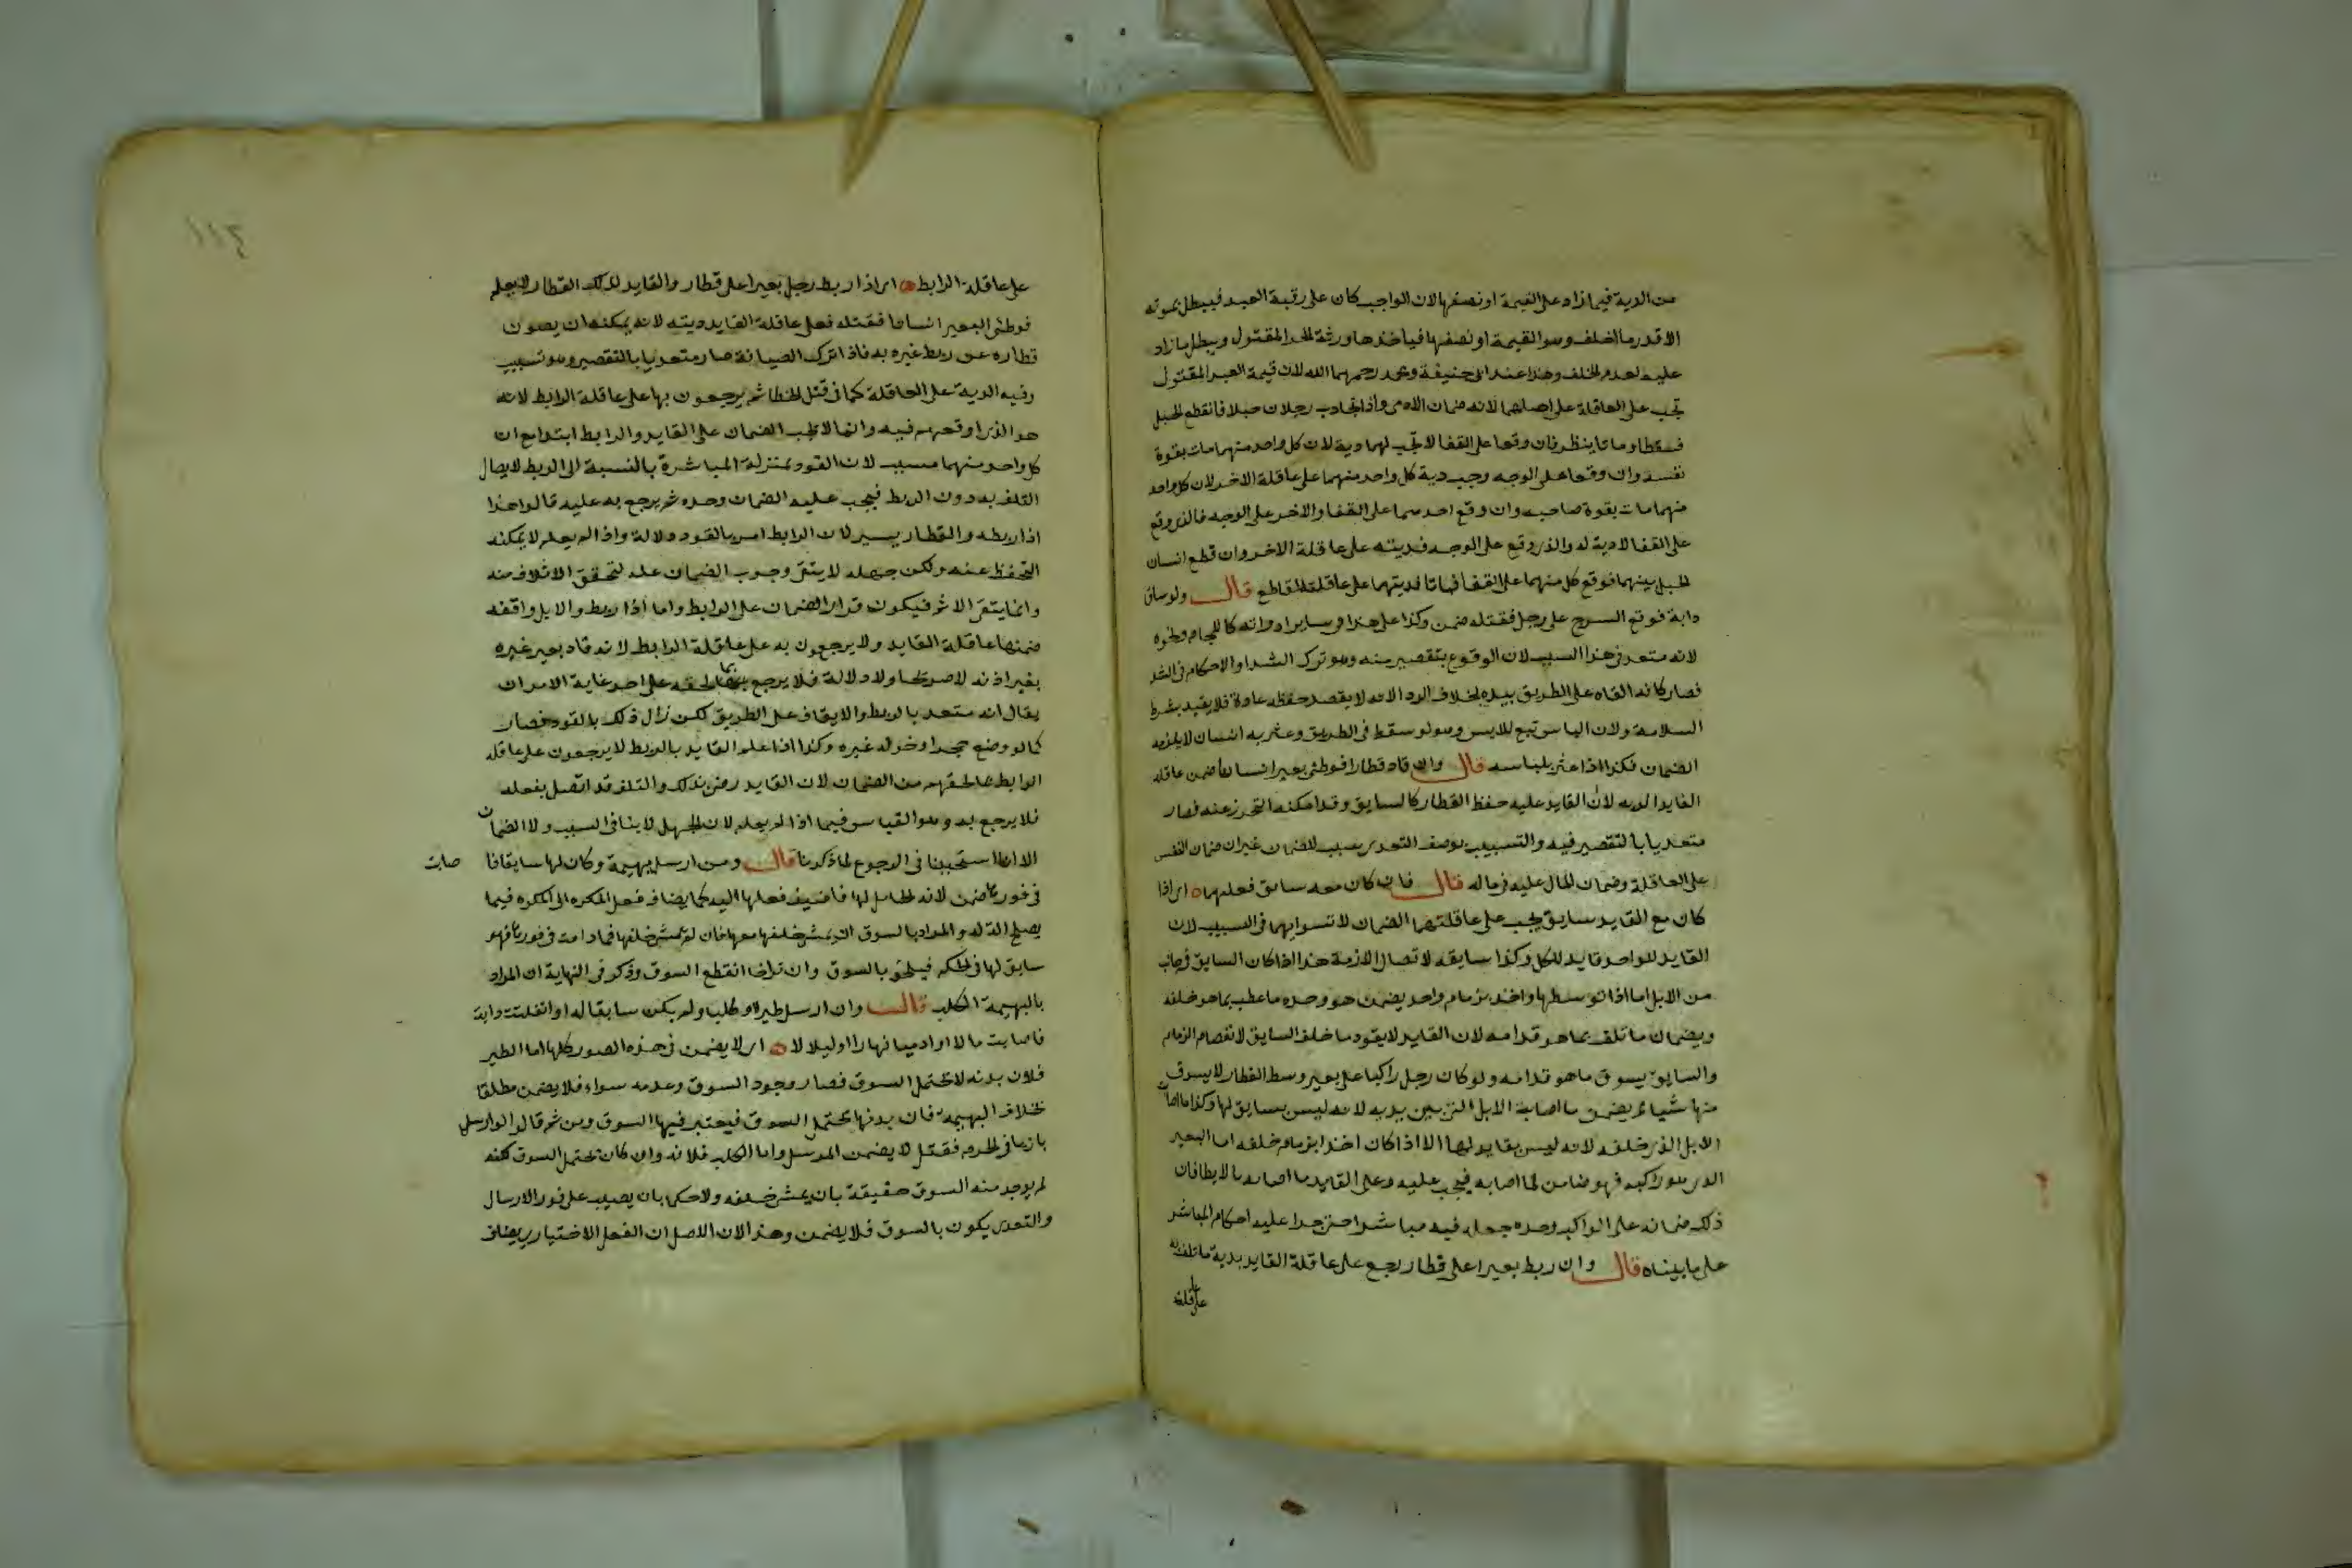 من الدية فيما زاد على القيمة او نصفها لان الواجب كان على رقبة العبد فيبطل بموته
الا قدر ما اخلف وهو القيمة او نصفها فياخذها ورثة الحر المقتول ويبطل ما زاد
عليه لعدم الخلف وهذا عند ابى حنيفة ومحمد رحمهما الله لان قيمة العبد المقتول
تجب على العاقلة على اصلهما لانه ضمان الادمى واذا تجاذب رجلان حبلا فانقطع الحبل
فسقطا وماتا ينظر فان وقعا على القفا لا تجب لهما دية لان كل واحد منهما مات بقوة
نفسه وان وقعا على الوجه وجب دية كل واحد منهما على عاقلة الاخر لان كل واحد
منهما مات بقوة صاحبه وان وقع احدهما على القفا والاخر على الوجه فالذى وقع
على القفا لا دية له والذى وقع على الوجه فديته على عاقلة الاخر وان قطع انسان
الحبل بينهما فوقع كل منهما على القفا فماتا فديتهما على عاقلة القاطع قال ولو ساق
دابة فوقع السرج على رجل فقتله ضمن وكذا على هذا وسائر ادواته كاللجام ونحوه
لانه متعد فى هذا السبب لان الوقوع بتقصير منه وهو ترك الشد او الاحكام فى الشد
فصار كانه القاه على الطريق بيده بخلاف الرداء لانه لا يقصد حفظه عادة فلا يقيد بشرط
السلامة ولان الباس تبع للابس وهو لو سقط فى الطريق وعثر به انسان لا يلزمه
الضمان فكذا اذا عثر بلباسه قال وان قاد قطارا فوطئ بعير انسانا ضمن عاقلة
القايد الدية لان القايد عليه حفظ القطار كالسايق وقد امكنه التحرز عنه فصار
متعديا بالتقصير فيه والتسبيب بوصف التعدى سبب للضمان غير ان ضمان النفس
على العاقلة وضمان المال عليه فى ماله قال فان كان معه سايق فعليهما اى اذا
كان مع القايد سايق يجب على عاقلتهما الضمان لاستوايهما فى التسبيب لان
القايد للواحد قايد للكل وكذا سايقه لاتصال الازمة هذا اذا كان السايق فى جانب
من الابل اما اذا توسطها واخذ بزمام واحد يضمن هو وحده ما عطب بما هو خلفه
ويضمان ما تلف بما هو قدامه لان القايد لا يقود ما خلف السايق لانفصام الزمام
والسايق يسوق ما هو قدامه ولو كان رجل راكبا على بعير وسط القطار لا يسوق
منها شيا لم يضمن ما اصابة الابل التى بين يديه لانه ليس بسايق لها وكذا ما اصاب
الابل الذى خلفه لانه ليس بقايد لها الا اذا كان اخذا بزمام خلفه اما البعير
الذى هو راكبه فهو ضامن لما اصابه فيجب عليه وعلى القايد ما اصابه بالايطا فان
ذلك ضمانه على الراكب وحده جعل فيه مباشرا حتى جرا عليه احكام المباشر
على ما بيناه قال وان ربط بعيرا على قطار رجع على عاقلة القايد بدية ما تلف به
على عاقلة
١١٣
على عاقلة الرابط اى اذا ربط رجل بعيرا على قطار والقايد لذلك القطار لا يعلم
فوطئ البعير انسانا فقتله فعلى عاقلة القايد ديته لانه يمكنه ان يصون
قطاره عن ربط غيره به فاذا ترك الصيانة صار متعديا بالتقصير وهو تسبيب
وفيه الدية على العاقلة كما فى قتل الخطا ثم يرجعون بها على عاقلة الرابط لانه
هو الذى اوقعهم فيه وانما لا يجب الضمان على القايد والرابط ابتدا مع ان
كل واحد منهما مسبب لان القود بمنزلة المباشرة بالنسبة الى الربط لاتصال
التلف به دون الربط فيجب عليه الضمان وحده ثم يرجع به عليه قالوا هذا
اذا ربطه والقطار يسير لان الرابط امر بالقود دلالة واذا لم يعلم لا يمكنه
التحفظ عنه ولكن جهله لا ينفى وجوب الضمان عليه لتحقق الاتلاف منه
وانما ينفى الاثم فيكون قرار الضمان على الرابط واما اذا ربط والابل واقفة
ضمنها عاقلة القايد ولا يرجعون به على عاقلة الرابط لانه قاد بعير غيره
بغير اذنه لا صريحا ولا دلالة فلا يرجع بما لحقه على احد غاية الامر ان
يقال انه متعد بالربط والايقاف على الطريق لكن زال ذلك بالقود فصار
كما لو وضع حجرا وحوله غيره وكذا اذا علم القايد بالربط لا يرجعون على عاقلة
الرابط بما لحقهم من الضمان لان القايد رضى بذلك والتلف قد اتصل بفعله
فلا يرجع به وهو القياس فيما اذا لم يعلم لان الجهل لا ينافى السبب ولا الضمان
الا انا استحسنا فى الرجوع لما ذكرنا قال ومن ارسل بهيمة وكان لها سايقا فا
صابت
فى فورها ضمن لانه الحامل لها فاضيف فعلها اليه كما يضاف فعل المكره الى المكره فيما
يصلح الة له والمراد بالسوق ان يمشى خلفها معها فان لم يمش خلفها فما دامت فى فورها فهو
سايق لها فى الحكم فيلحق بالسوق وان تراخا انقطع السوق وذكر فى النهاية ان المراد
بالبهيمة الكلب قال وان ارسل طيرا او كلبا ولم يكن سايقا له او انفلتت دابة
فاصابت مالا او ادميا نهارا او ليلا لا اى لا يضمن فى هذه الصور كلها اما الطير
فلان بدنه لا يحتمل السوق فصار وجود السوق وعدمه سواء فلا يضمن مطلقا
بخلاف البهيمة فان بدنها يحتمل السوق فيعتبر فيها السوق ومن ثم قالوا لو ارسل
بازيا فى الحرم فقتل لا يضمن المرسل واما الكلب فلانه وان كان يحتمل السوق لكنه
لم يوجد منه السوق حقيقة بان يمشى خلفه ولا حكما بان يصيب على فور الارسال
والتعدى يكون بالسوق فلا يضمن وهذا لان الاصل ان الفعل الاختيارى يضاف